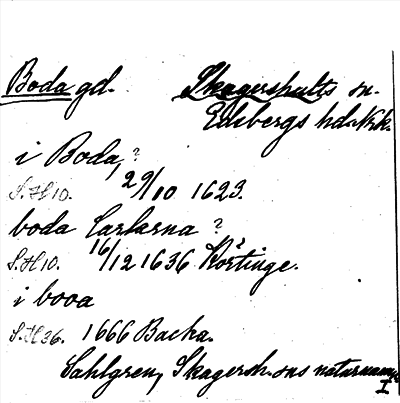 Boda gd. Skagershults sn.
Edsbergs hd. Nrk.
i Boda, ?
S.H 10. 29/10 1623.
boda Carlarna ?
S.H 10. 16/12 1636 Körtinge.
i booa
S.H 36. 1666 Bacha.
Sahlgren, Skagersh. sns naturnamn
I